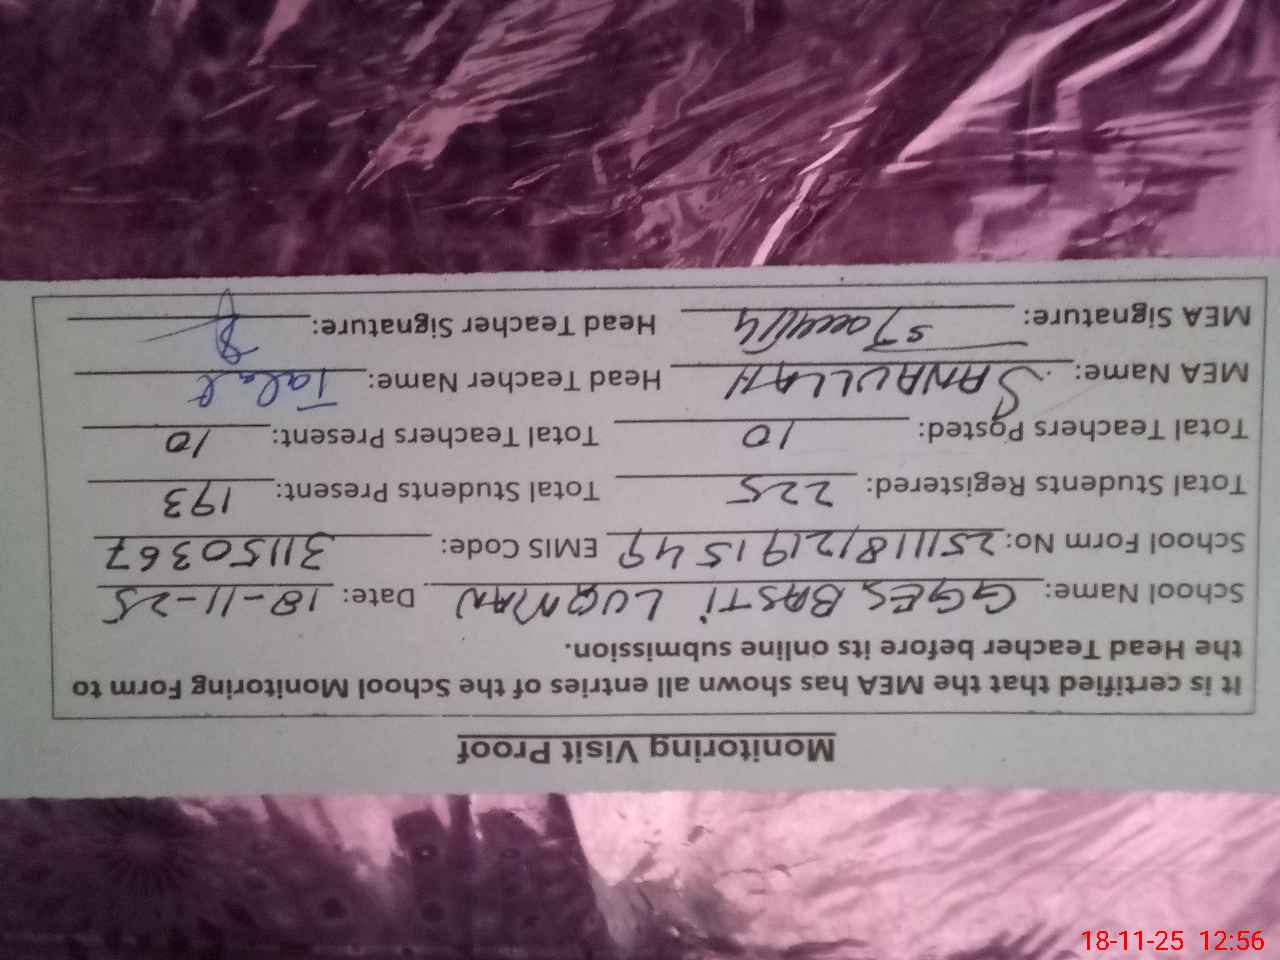 Monitoring Visit Proof
It is certified that the MEA has shown all entries of the School Monitoring Form to
the Head Teacher before its online submission.
School Name: GGES BASTI LUQMAN Date: 18-11-25
School Form No: 25111812191549 EMIS Code: 31150367
Total Students Registered: 225 Total Students Present: 193
Total Teachers Posted: 10 Total Teachers Present: 10
MEA Name: SANAULLAH Head Teacher Name: Talat
MEA Signature: Head Teacher Signature:
18-11-25 12:56